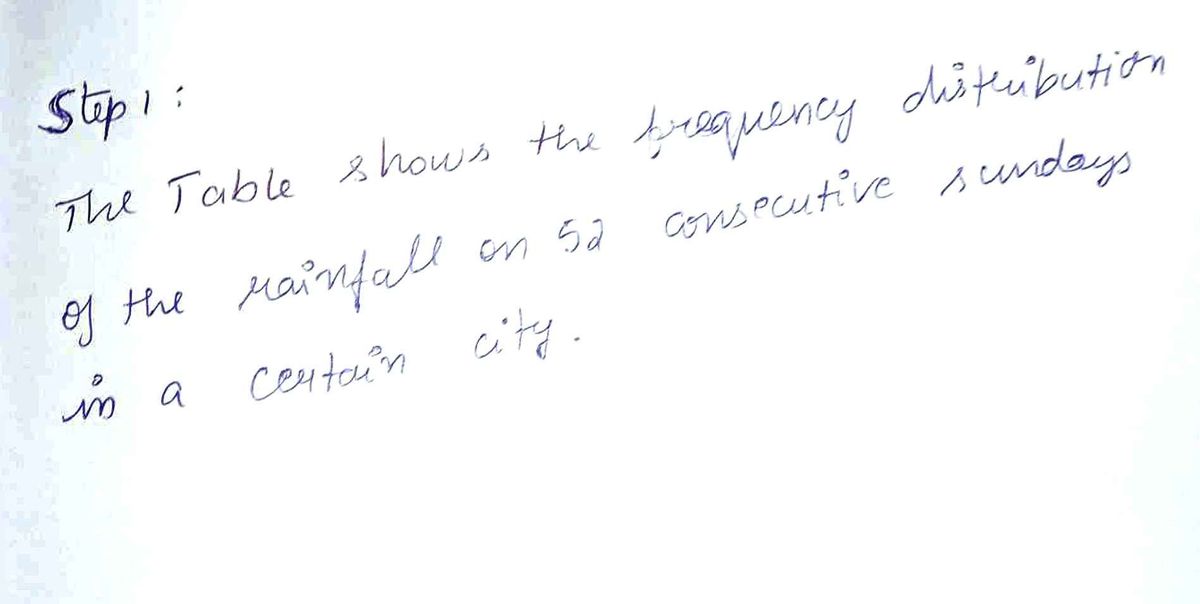 Step 1 :
The Table shows the frequency distribution
of the rainfall on 52 consecutive sundays
in a certain city.